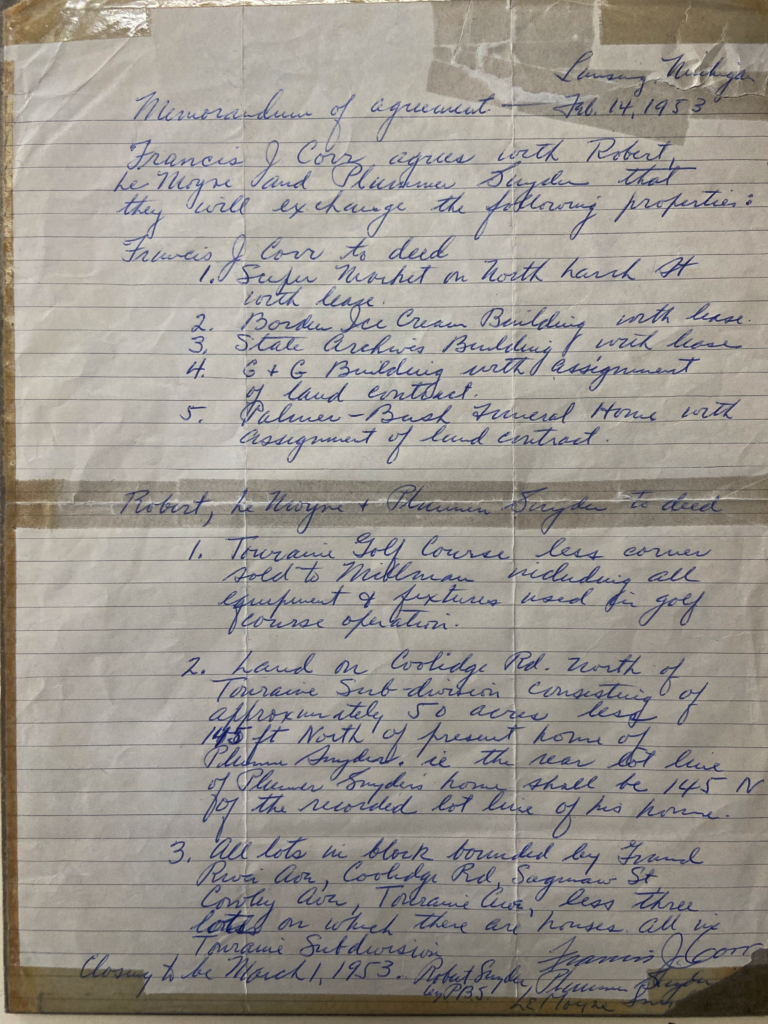 Lansing, Michigan
Memorandum of agreement — Feb. 14, 1953
Francis J Corr agrees with Robert,
Le Moyne and Plummer Snyder that
they will exchange the following properties:
Francis J Corr to deed
1. Super Market on North Larch St
with lease.
2. Borden Ice Cream Building with lease.
3. State Archives Building with lease
4. G + G Building with assignment
of land contract.
5. Palmer-Bush Funeral Home with
assignment of land contract.
Robert, Le Moyne + Plummer Snyder to deed
1. Touraine Golf Course less corner
sold to Millman including all
equipment & fixtures used in golf
course operation.
2. Land on Coolidge Rd. North of
Touraine Sub-division consisting of
approximately 50 acres less
145 ft North of present home of
Plummer Snyder. ie the rear lot line
of Plumer Snyder's home shall be 145 N
of the recorded lot line of his home.
3. All lots in block bounded by Grand
River Ave, Coolidge Rd, Saginaw St
Cowley Ave, Touraine Ave, less three
lots on which there are houses all in
Touraine Subdivision
Francis J. Corr
Closing to be March 1, 1953. Robert Snyder, Plummer Snyder
by PBS Le Moyne